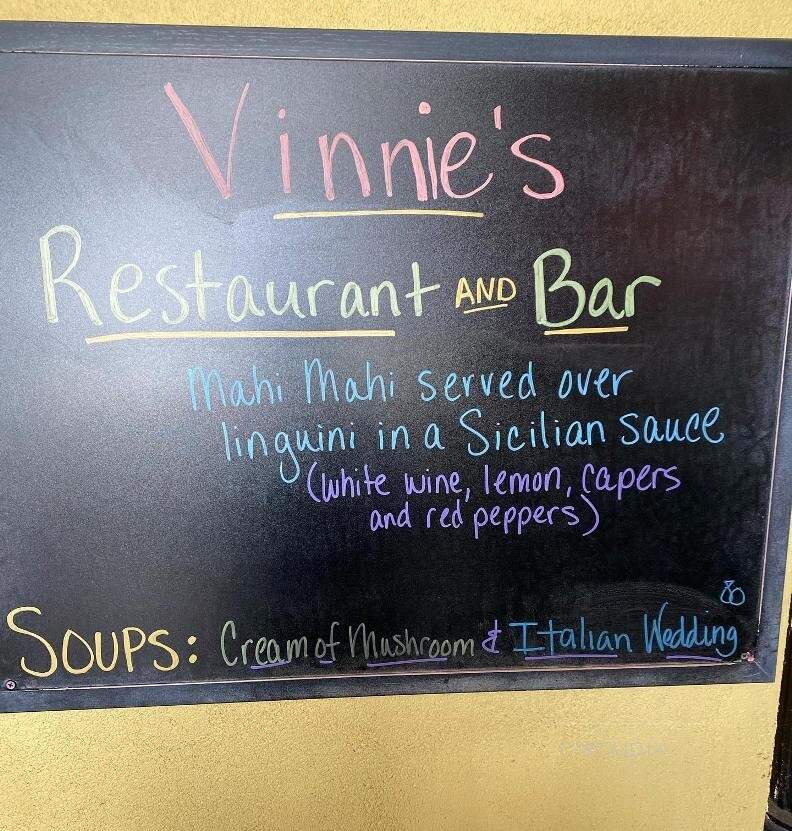 Vinnie's
Restaurant AND Bar
Mahi Mahi served over
linguini in a Sicilian sauce
(white wine, lemon, capers
and red peppers)
Soups: Cream of Mushroom & Italian Wedding